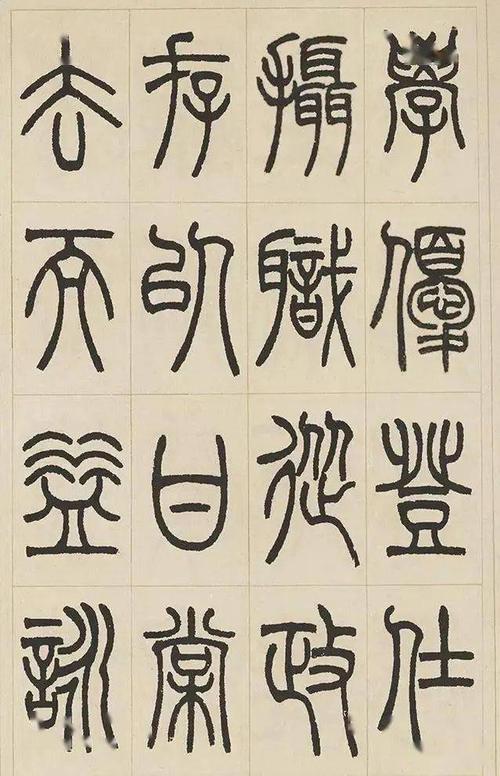 學優登仕
攝職從政
存㠯甘棠
去而益詠